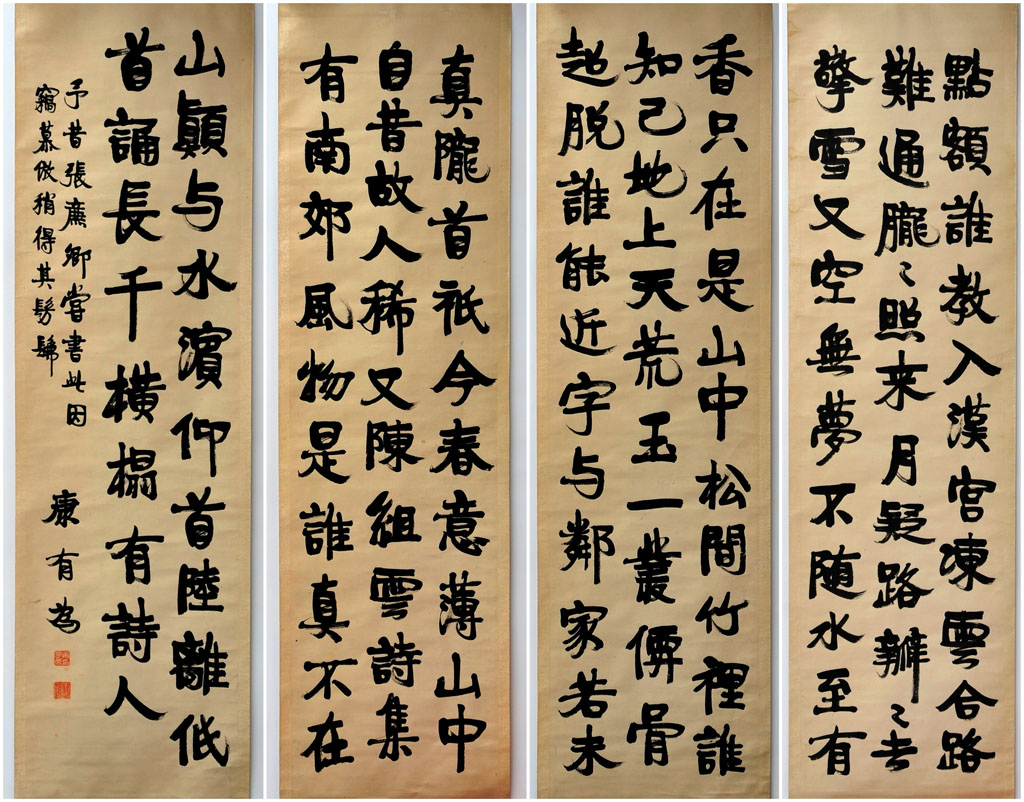 點額誰教入漢宮凍雲合路
難通朧〻照来月疑路瓣〻去
擎雪又空無夢不随水至有
香只在是山中松間竹裡誰
知己地上天荒玉一叢僊骨
超脱誰能近字与鄰家若未
真隴首祇今春意薄山中
自昔故人稀又陳組雲詩集
有南郊風物是誰真不在
山顛与水濱仰首陸離低
首誦長千橫榻有詩人
予昔張廉卿嘗書此因
竊慕倣稍得其髣髴
康有為